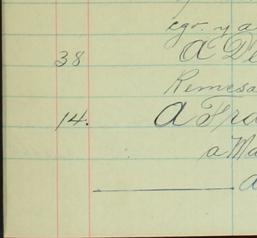 egr. y a
38 a De
Remesa
14. a Tra
a Ma
a